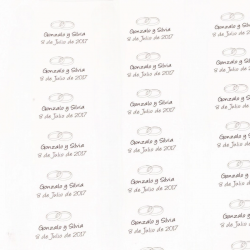 Gonzalo y Silvia
8 de Julio de 2017
Gonzalo y Silvia
8 de Julio de 2017
Gonzalo y Silvia
8 de Julio de 2017
Gonzalo y Silvia
8 de Julio de 2017
Gonzalo y Silvia
8 de Julio de 2017
Gonzalo y Silvia
8 de Julio de 2017
Gonzalo y Silvia
8 de Julio de 2017
Gonzalo y Silvia
8 de Julio de 2017
Gonzalo y Silvia
8 de Julio de 2017
Gonzalo y Silvia
8 de Julio de 2017
Gonzalo y Silvia
8 de Julio de 2017
Gonzalo y Silvia
8 de Julio de 2017
Gonzalo y
8 de Julio de
Gonzalo y
8 de Julio de
Gonzalo y
8 de Julio de
Gonzalo y
8 de Julio de
Gonzalo y
8 de Julio de
Gonzalo y
8 de Julio de